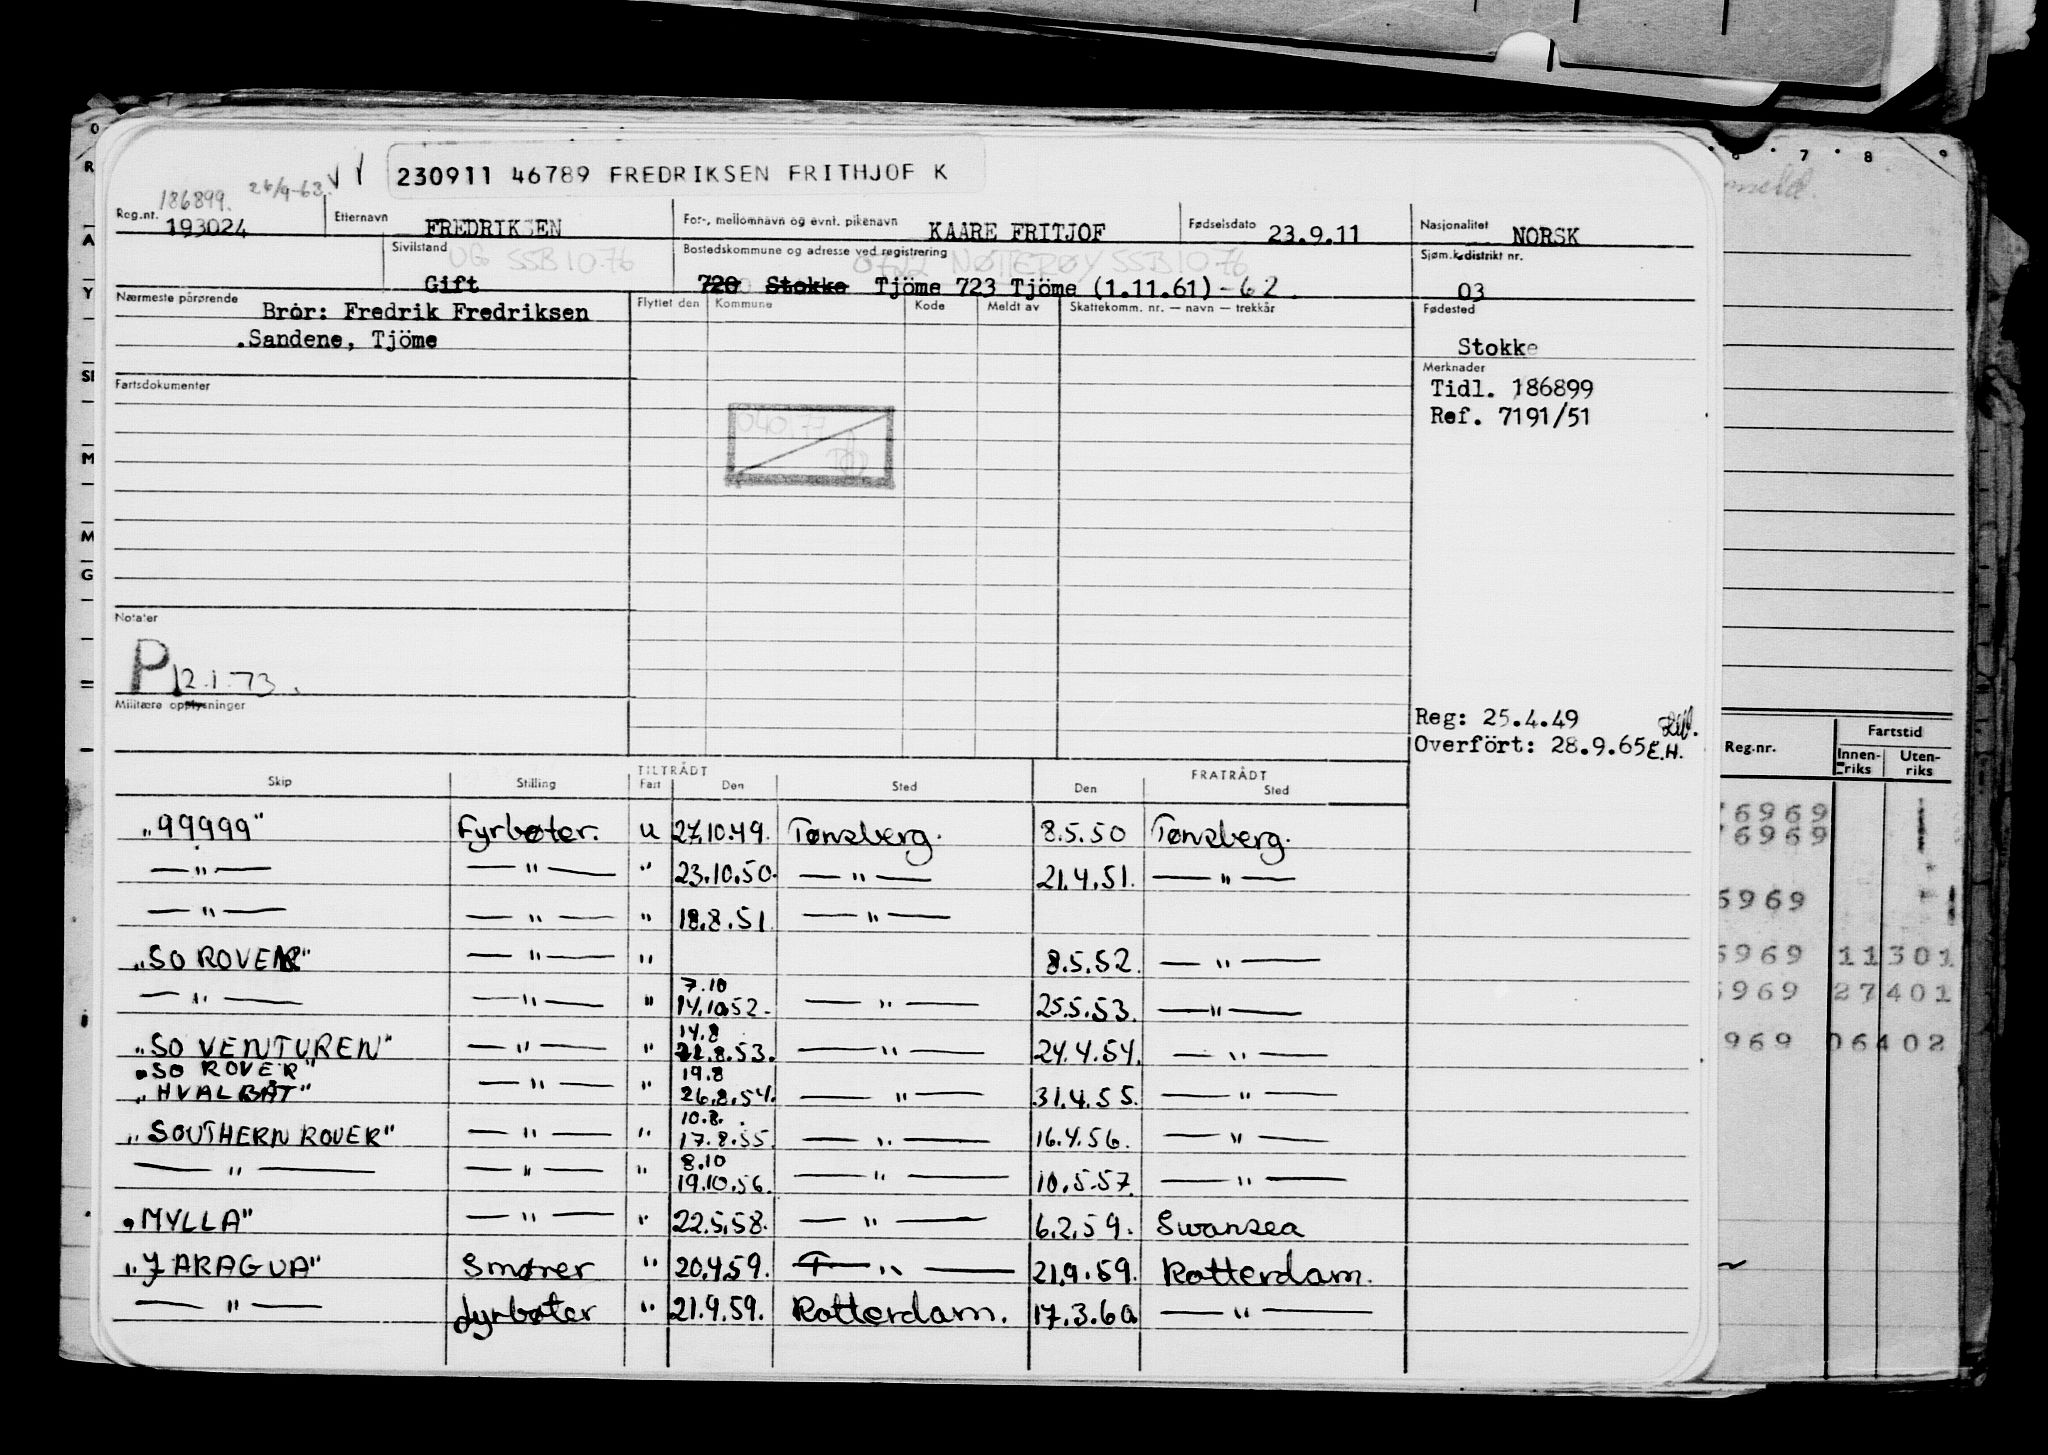 230911 46789 FREDRIKSEN FRITHJOF K
186899. 24/9-63.
Reg.nr. 193024 Etternavn FREDRIKSEN For-, mellomnavn og evnt. pikenavn KAARE FRITJOF Fødselsdato 23.9.11 Nasjonalitet NORSK
Sivilstand UG SSB 10.76 Bostedskommune og adresse ved registrering 0722 NØTTERØY SSB 10.76 Sjøm.k.distrikt nr.
Gift 720 Stokke Tjöme 723 Tjöme (1.11.61) -62. 03
Nærmeste pårørende Flyttet den Kommune Kode Meldt av Skattekomm. nr. — navn — trekkår Fødested
Bror: Fredrik Fredriksen
.Sandene, Tjöme
Stokke
Merknader
Fartsdokumenter
Tidl. 186899
Ref. 7191/51
040177
Notater
P 12.1.73.
Militære opplysninger
Reg: 25.4.49
Overfört: 28.9.65 E.H.
TILTRÅDT FRATRÅDT
Skip Stilling Fart Den Sted Den Sted
„99999" Fyrbøter. u 27.10.49. Tønsberg. 8.5.50 Tønsberg.
—"— —"— " 23.10.50. —"— 21.4.51. —"—
—"— —"— " 18.8.51. —"—
„SO ROVER" —"— " 8.5.52. —"—
7.10
—"— —"— " 14.10.52. —"— 25.5.53. —"—
14.8
„SO VENTUREN" —"— " 22.8.53. —"— 24.4.54. —"—
„SO ROVER" 19.8
„HVALBÅT" —"— " 26.8.54. —"— 31.4.55. —"—
10.8.
„SOUTHERN ROVER" —"— " 17.8.55. —"— 16.4.56. —"—
8.10
—"— —"— " 19.10.56. —"— 10.5.57. —"—
„MYLLA" —"— " 22.5.58. —"— 6.2.59. Swansea
„JARAGUA" Smører " 20.4.59. —"— 21.9.59. Rotterdam.
—"— fyrbøter " 21.9.59. Rotterdam. 17.3.60 —"—
6 7 8 9
O
R
A
Y
SI
M
M
G
Reg.nr. Fartstid
Innen-riks Uten-riks
6969
6969
6969
6969 11301
6969 27401
969 06402